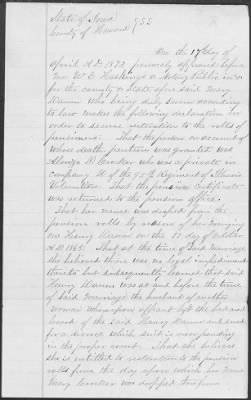 State of Iowa
County of Howard } SS
On the 17 day of
April A.D. 1873 personly appeared before
me W. E. a Notary Public in &
for the county & State afore said Mary
who being duly sworn according
to law makes the following declaration in
order to secure restoration to the rolls of
pensioners. That the person on account
whose death pention was granted was
Alonzo D. who was a private in
company of the 95th Regiment of Illinois
Volunteers. That the pension Certificate
was returned to the pension office.
That her name was droped from the
pension rolls by reason of her marrage
to Henry on the 17 day of October
A.D. 1865. That at the time of said Marriage
she believed there was no legal impediment
thereto but subsequently learned that said
Henry was at and before the time
of said Marriage the husband of another
woman whereupon affiant left the bed and
board of the said Henry and sued
for a divorce which suit is now pending
in the proper court. That she believes
she is entitled to restoration to the pension
rolls from the day upon which her name
Mary was dropped therefrom